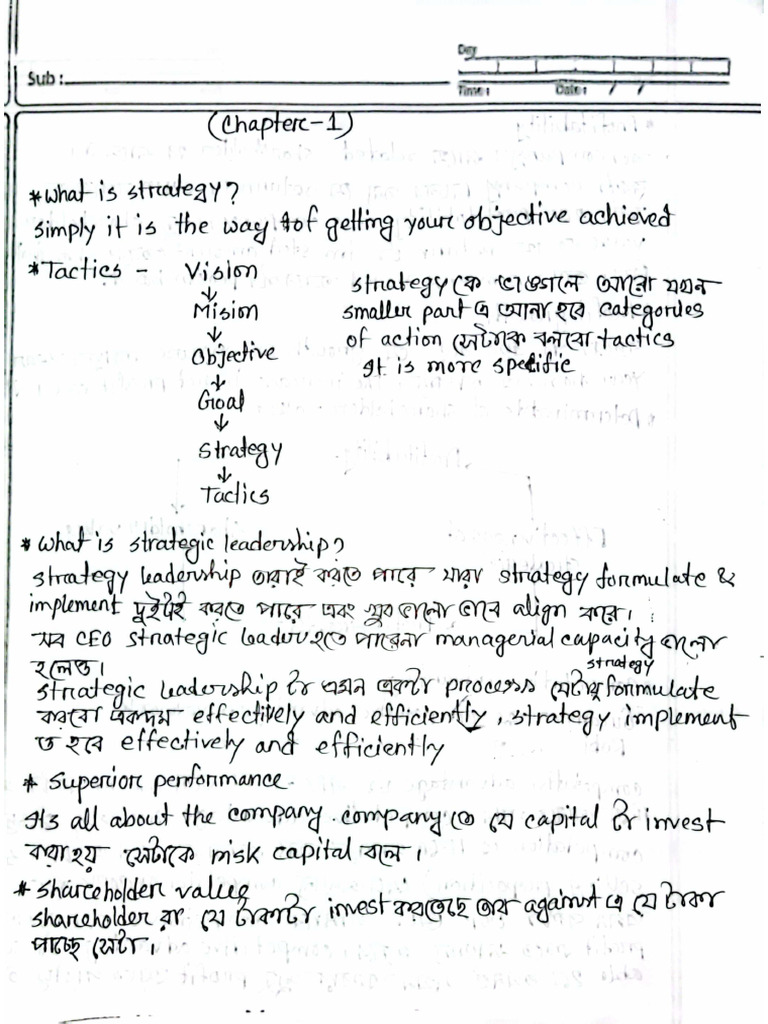 Day
Sub :
Time :
Date : / /
(Chapter-1)
* What is strategy?
Simply it is the way of getting your objective achieved
* Tactics - Vision
↓
Mision
↓
Objective
↓
Goal
↓
Strategy
↓
Tactics
strategy কে ভাঙালে আরো যখন
smaller part এ আনা হবে categories
of action সেটাকে বলবো tactics
It is more specific
* What is strategic leadership?
strategy leadership তারাই করতে পারে যারা strategy formulate &
implement দুইটাই করতে পারে এবং খুব ভালো ভাবে align করে।
সব CEO strategic leader হতে পারেনা managerial capacity ভালো
হলেও।
strategic leadership টা এমন একটা process যেটায় strategy formulate
করবো একদম effectively and efficiently, strategy implement
ও হবে effectively and efficiently
* Superior performance
It's all about the company. company তে যে capital টা invest
করা হয় সেটাকে risk capital বলে।
* Shareholder value
shareholder রা যে টাকাটা invest করতেছে তার against এ যে টাকা
পাচ্ছে সেটা।